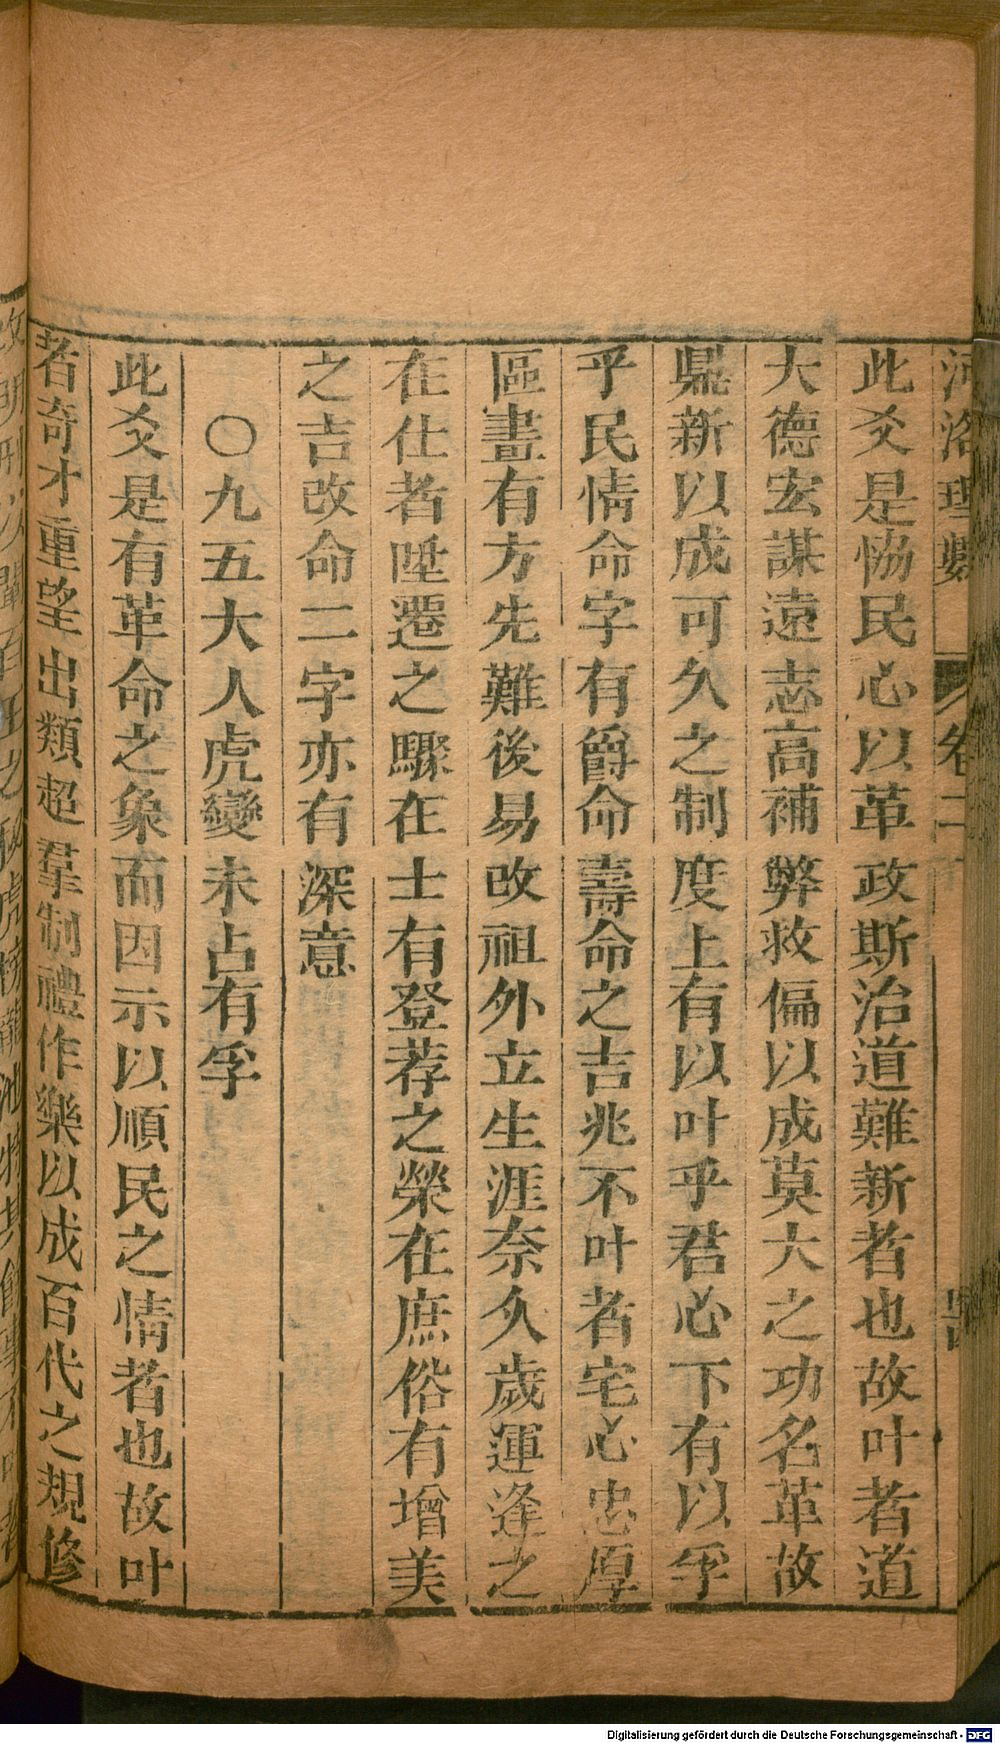 河洛理數 卷二
此爻是恊民心以革政斯治道難新者也故叶者道
大德宏謀遠志高補弊救偏以成莫大之功名革故
鼎新以成可久之制度上有以叶乎君心下有以孚
乎民情命字有爵命壽命之吉兆不叶者宅心忠厚
區畫有方先難後易改祖外立生涯奈久歲運逢之
在仕者陞遷之驟在士有登荐之榮在庶俗有增美
之吉改命二字亦有深意
〇九五大人虎變未占有孚
此爻是有革命之象而因示以順民之情者也故叶
者奇才重望出類超羣制禮作樂以成百代之規修
Digitalisierung gefördert durch die Deutsche Forschungsgemeinschaft - DFG